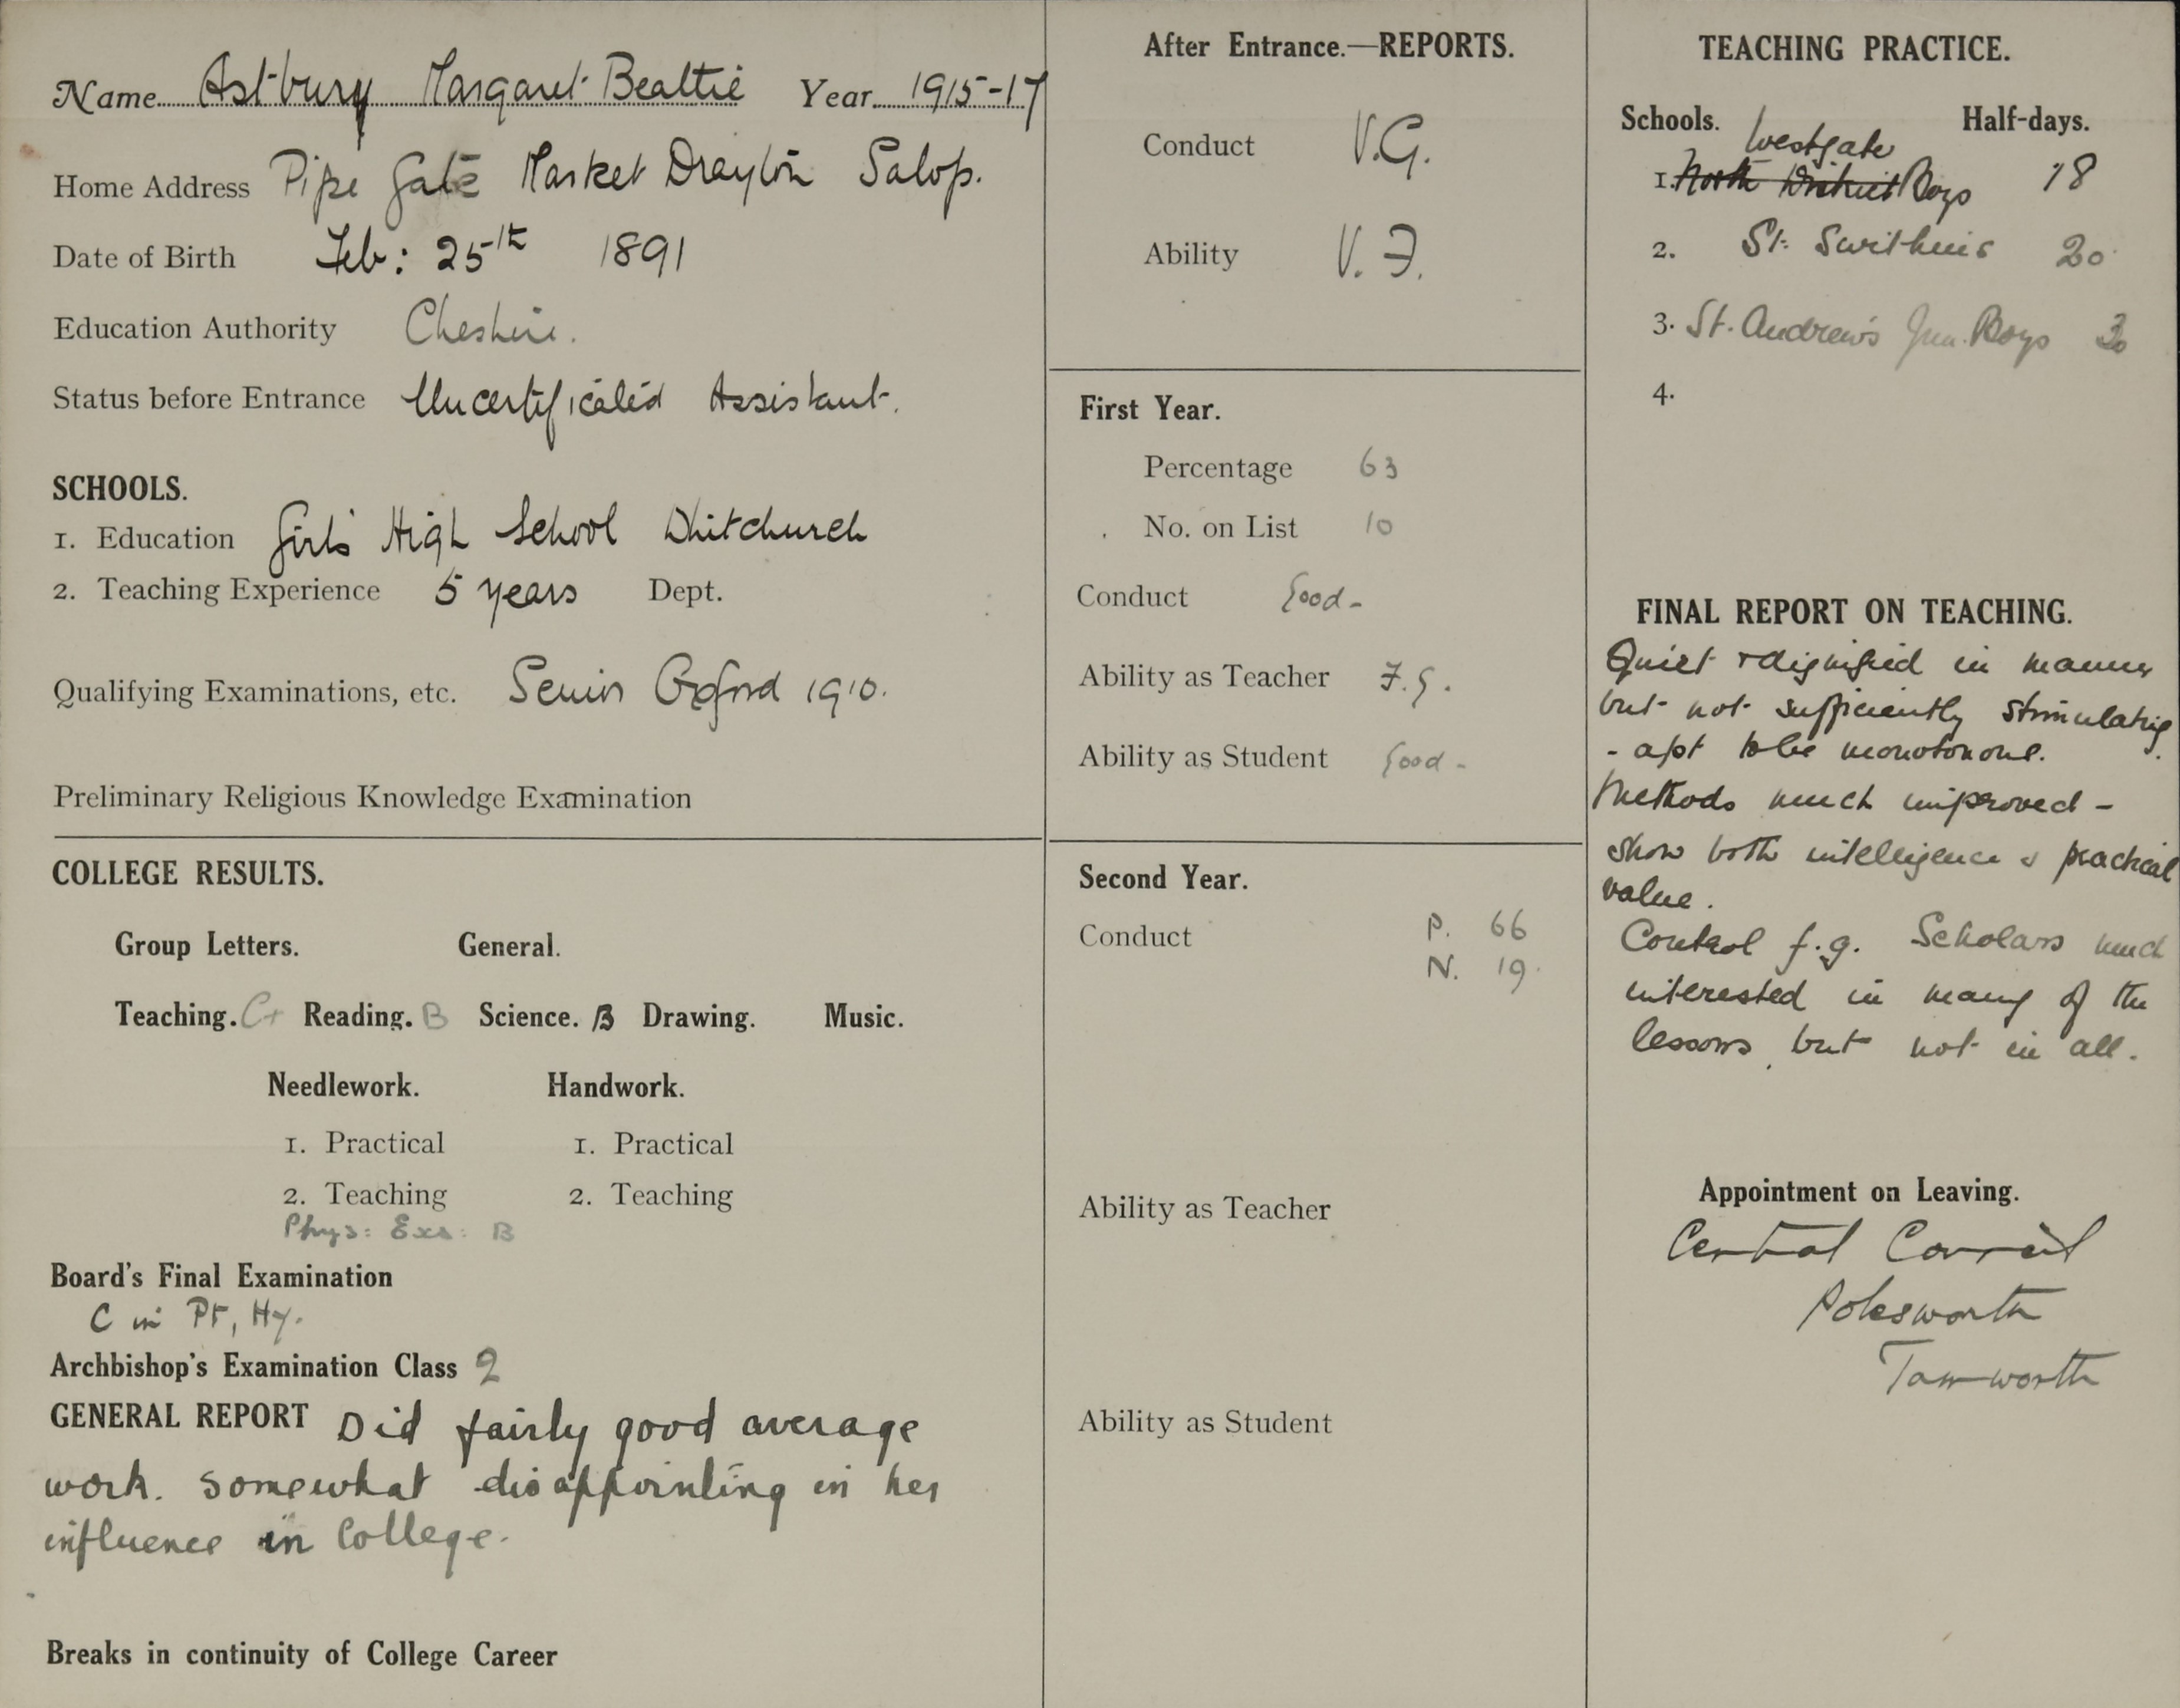 Name Astbury Margaret Beattie Year 1915-17
Home Address Pipe Gate Market Drayton Salop.
Date of Birth Feb: 25th 1891
Education Authority Cheshire.
Status before Entrance Uncertificated Assistant.
SCHOOLS.
1. Education Girls' High School Whitchurch
2. Teaching Experience 5 years Dept.
Qualifying Examinations, etc. Senior Oxford 1910.
Preliminary Religious Knowledge Examination
COLLEGE RESULTS.
Group Letters. General.
Teaching. C+ Reading. B Science. B Drawing. Music.
Needlework. Handwork.
1. Practical 1. Practical
2. Teaching 2. Teaching
Phys: Exs: B
Board's Final Examination
C in Pt, Hy.
Archbishop's Examination Class 2
GENERAL REPORT Did fairly good average
work. Somewhat disappointing in her
influence in College.
Breaks in continuity of College Career
After Entrance.—REPORTS.
Conduct V.G.
Ability V.F.
First Year.
Percentage 63
No. on List 10
Conduct Good -
Ability as Teacher F.G.
Ability as Student Good -
Second Year.
Conduct P. 66
N. 19.
Ability as Teacher
Ability as Student
TEACHING PRACTICE.
Schools. Half-days.
Westgate
1. North District Boys 18
2. St. Swithins 20
3. St. Andrew's Jun. Boys
4.
FINAL REPORT ON TEACHING.
Quiet + dignified in manner
but not sufficiently stimulating
- apt to be monotonous.
Methods much improved -
show both intelligence & practical
value.
Control f.g. Scholars much
interested in many of the
lessons, but not in all.
Appointment on Leaving.
Central Council
Polesworth
Tamworth